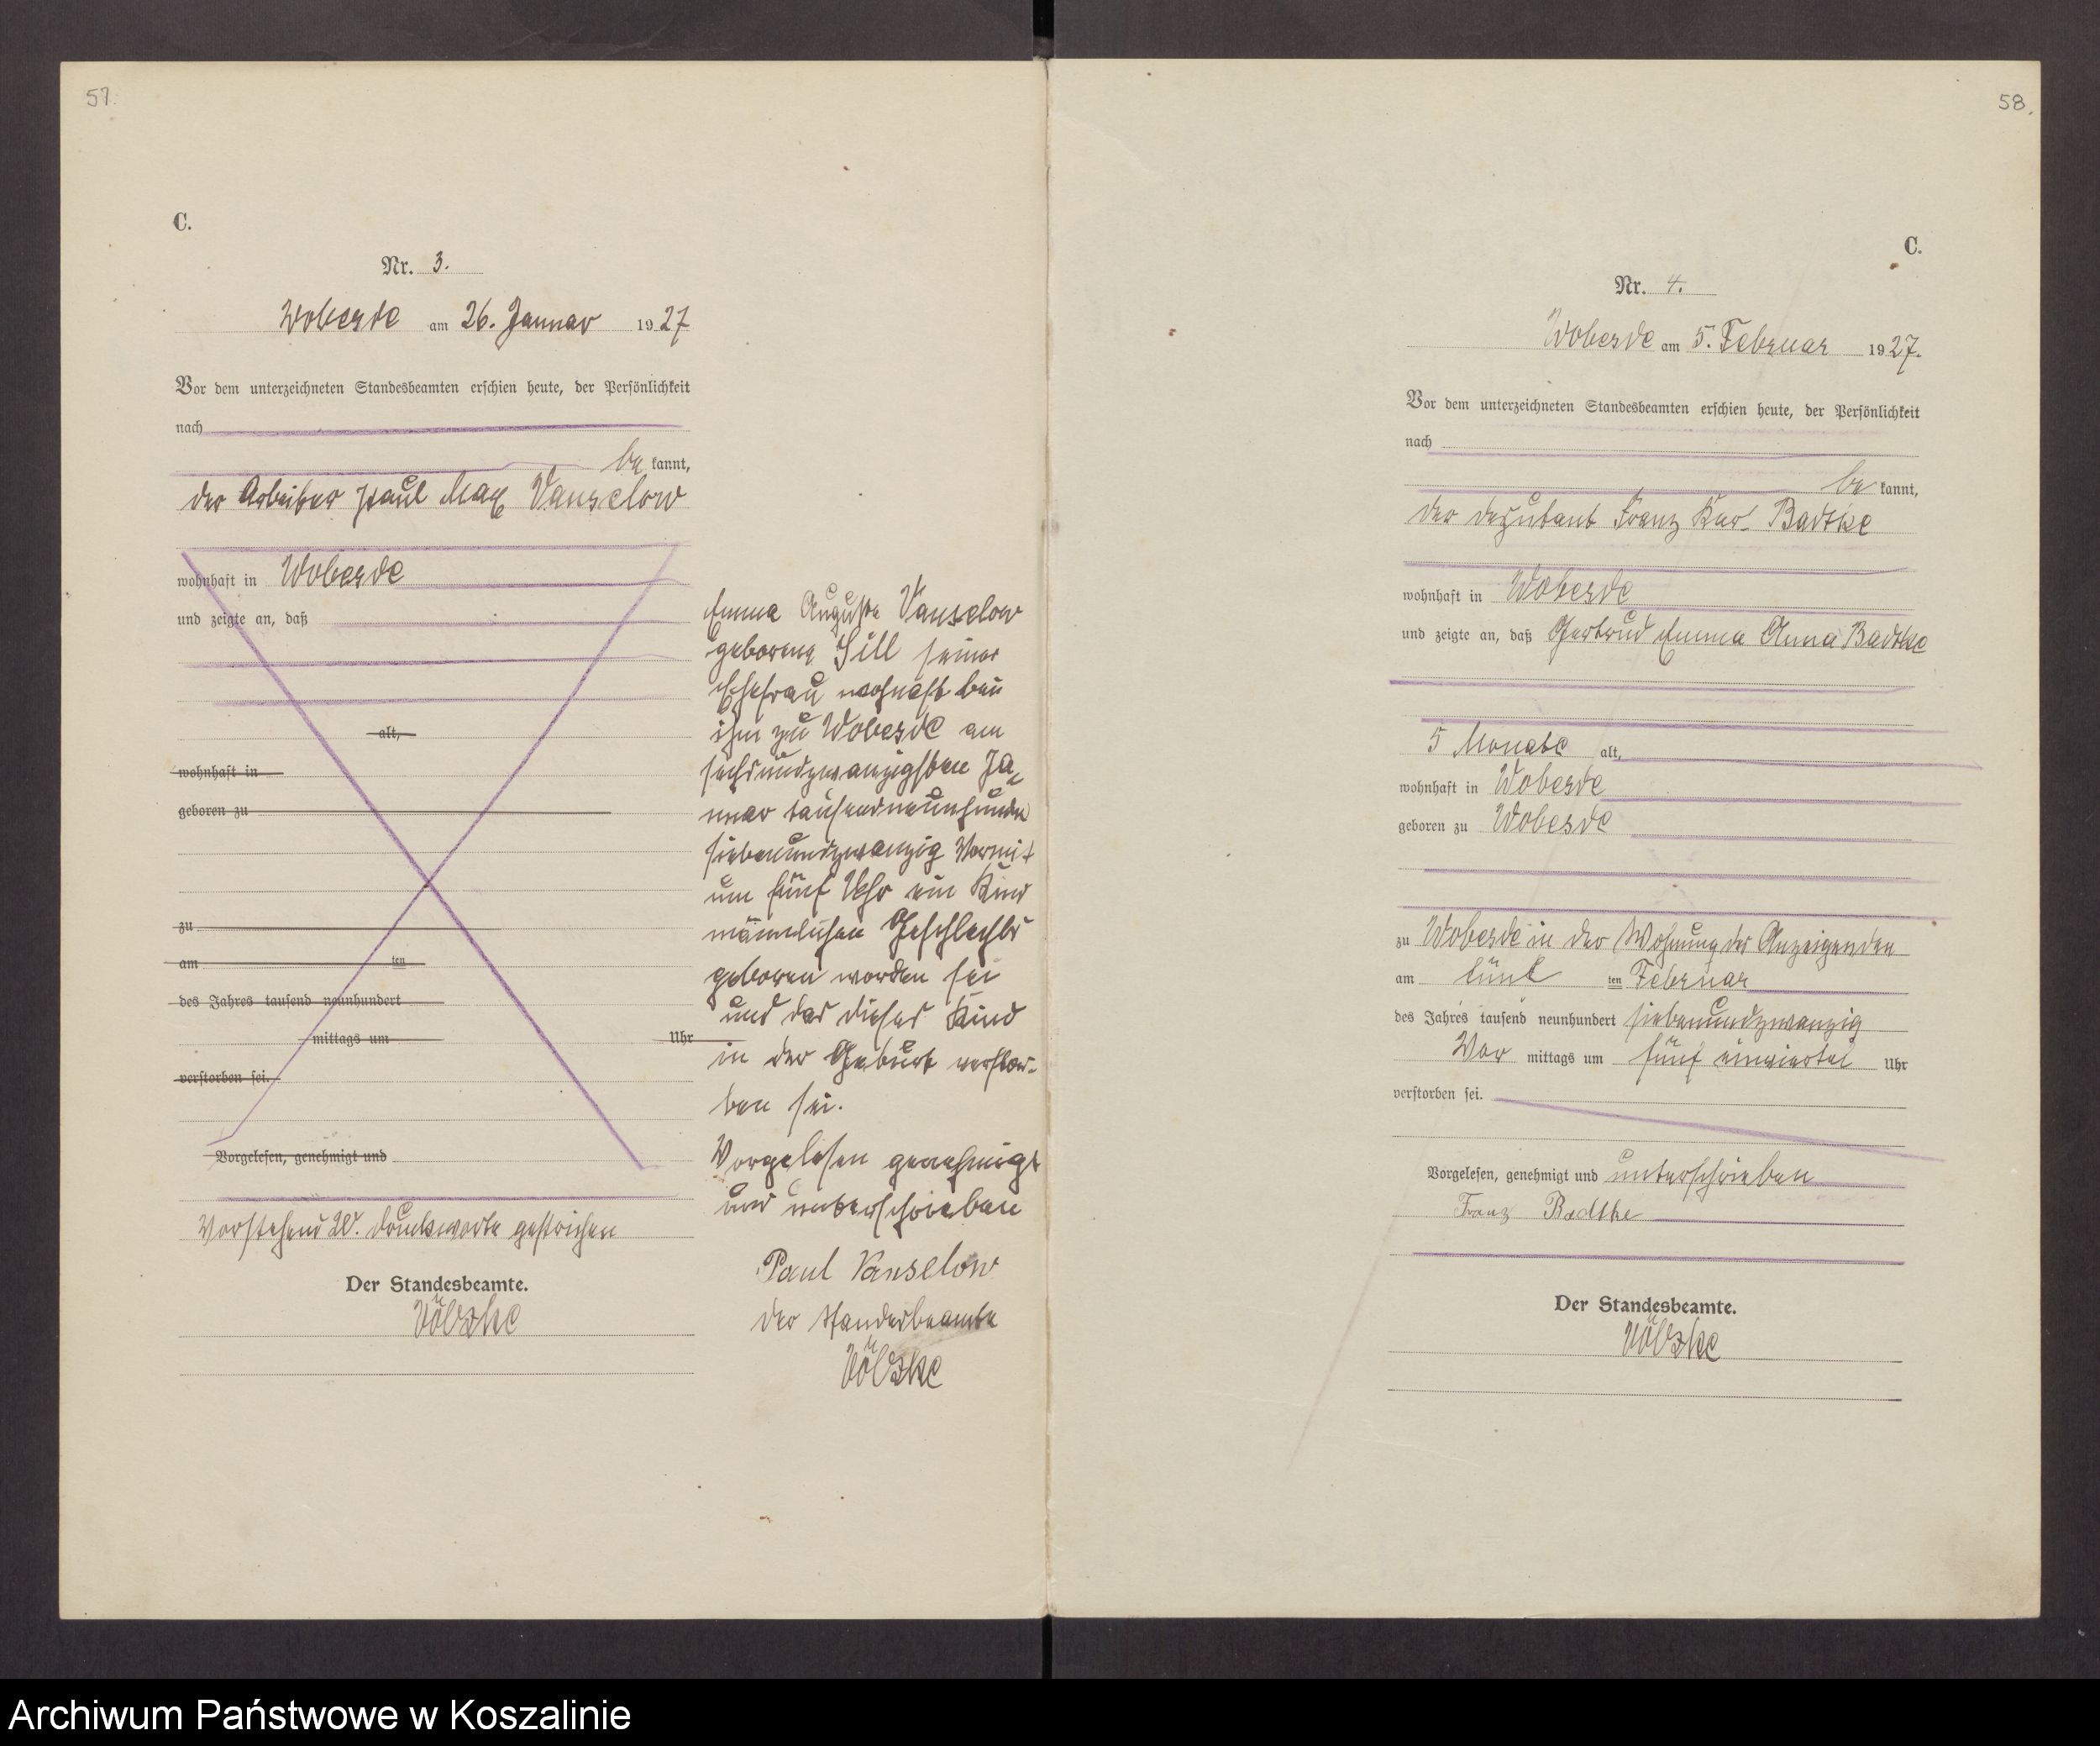 57.
C.
Nr. 3.
Wobesde am 26. Januar 1927
Vor dem unterzeichneten Standesbeamten erschien heute, der Persönlichkeit
nach
be kannt,
der Arbeiter Paul Max Vanselow
wohnhaft in Wobesde
und zeigte an, daß
alt,
wohnhaft in
geboren zu
zu
am ten
des Jahres tausend neunhundert
mittags um Uhr
verstorben sei.
Vorgelesen, genehmigt und
Vorstehend 20. Druckworte gestrichen
Der Standesbeamte.
Völzke
Emma Auguste Vanselow
geborene Sill seiner
Ehefrau wohnaft bei
ihm zu Wobesde am
sechsundzwanzigsten Ja-
nuar tausendneunhundert
siebenundzwanzig Vormit
um fünf Uhr ein Kind
männlichen Geschlechts
geboren worden sei
und das dieses Kind
in der Geburt verstor-
ben sei.
Vorgelesen genehmigt
und unterschrieben
Paul Vanselow
der Standesbeamte
Völzke
58.
C.
Nr. 4.
Wobesde am 5. Februar 1927.
Vor dem unterzeichneten Standesbeamten erschien heute, der Persönlichkeit
nach
be kannt,
der Deputant Franz Karl Badtke
wohnhaft in Wobesde
und zeigte an, daß Gertrud Emma Anna Badtke
5 Monate alt,
wohnhaft in Wobesde
geboren zu Wobesde
zu Wobesde in der Wohnung des Anzeigenden
am fünf ten Februar
des Jahres tausend neunhundert siebenundzwanzig
Vor mittags um fünf einviertel Uhr
verstorben sei.
Vorgelesen, genehmigt und unterschrieben
Franz Badtke
Der Standesbeamte.
Völzke
Archiwum Państwowe w Koszalinie